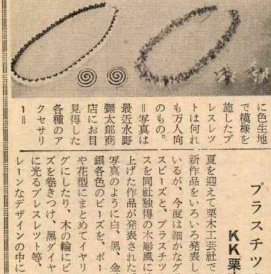 プラスチッ
KK栗
夏を迎えて栗木工芸社で
新作品をいろいろ発表し
いるが、今度は細かなグ
スビーズと、プラスチッ
スを同社独得の木彫風に
上げた作品が発表された
写真のように白、黒、金
銀各色のビーズを、ボー
や花型にまとめてイヤリ
グにしたり、木の輪にビ
ズを巻きつけ、黒ダイヤ
に光るブレスレット等、
レーンなデザインの中に
に色生地
で模様を
施したブ
レスレッ
トは何れ
も万人向
のもの。
＝写真は
最近水野
彌太郎商
店にお目
見得した
各種のア
クセサリ
ー＝